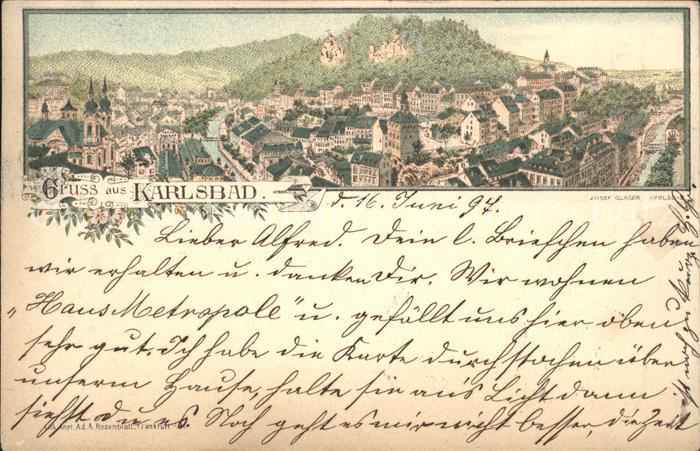 Gruss aus KARLSBAD.
JOSEF GLASER KARLSBAD
d. 16. Juni 97.
Lieber Alfred. Dein l. Briefchen haben
wir erhalten u. danken Dir. Wir wohnen
„Haus Metropole" u. gefällt uns hier oben
sehr gut. Ich habe die Karte durchstochen über
unserm Hause, halte sie an's Licht dann
siehst du es. Noch geht es mir nicht besser, die Zeit
Lith. Anst. Ad. A. Rosenblatt, Frankfurt
ist noch zu kurz